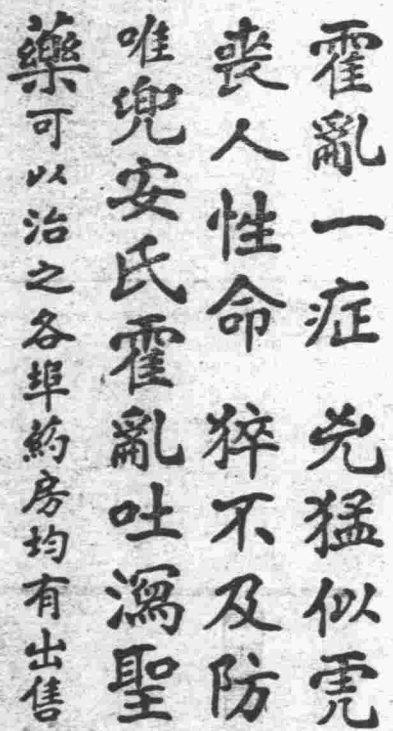 霍亂一症　兇猛似虎
喪人性命　猝不及防
唯兜安氏霍亂吐瀉聖
藥可以治之各埠葯房均有出售